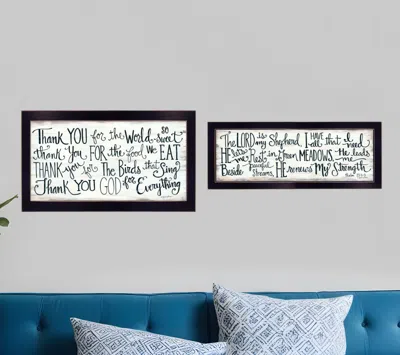 Thank YOU for the World so sweet
thank You FOR the food We EAT
THANK you for The Birds that Sing
Thank YOU GOD for Everything
The LORD is my Shepherd. I HAVE all that I need
HE lets me Rest in Green MEADOWS. He leads me
Beside peaceful streams. HE renews My Strength